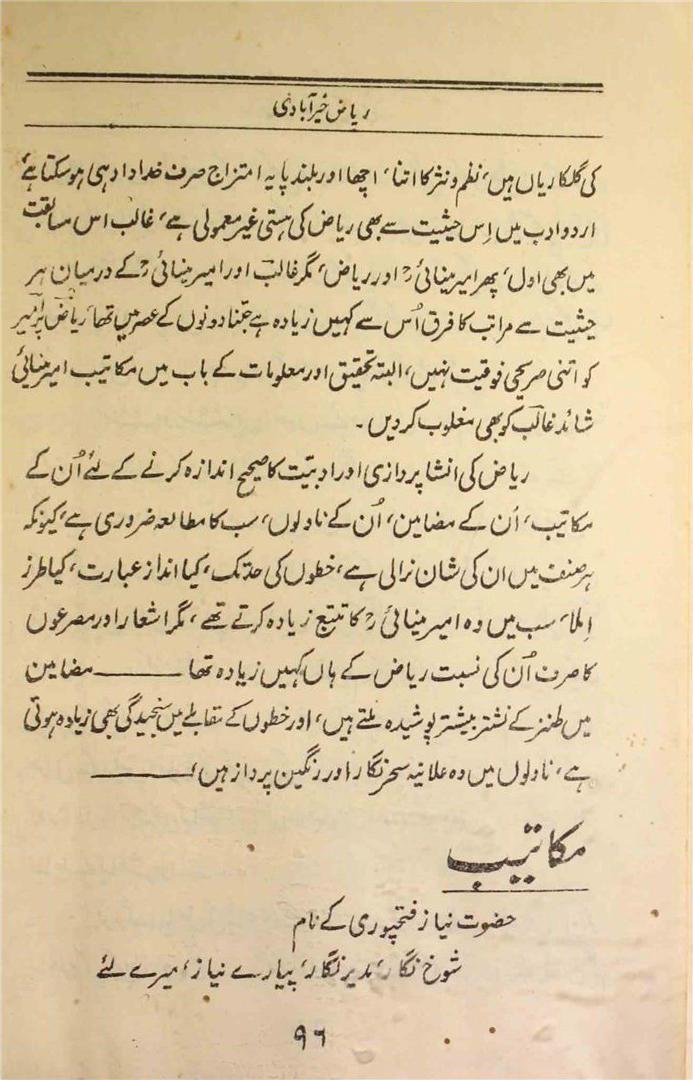 ریاض خیرآبادی
کی گلکاریاں ہیں، نظم و نثر کا اتنا، اچھا اور بلند پایہ امتزاج صرف خداداد ہی ہوسکتا ہے
اردو ادب میں اِس حیثیت سے بھی ریاض کی ہستی غیر معمولی ہے، غالب اس مسابقت
میں بھی اول، پھر امیر مینائیؒ اور ریاض، مگر غالب اور امیر مینائیؒ کے درمیان ہر
حیثیت سے مراتب کا فرق اُس سے کہیں زیادہ ہے جتنا دونوں کے عصر میں تھا، ریاض پر امیر
کو اتنی صریحی فوقیت نہیں، البتہ تحقیق اور معلومات کے باب میں مکاتیب امیر مینائی
شائد غالب کو بھی مغلوب کردیں۔
ریاض کی انشا پردازی اور ادبیت کا صحیح اندازہ کرنے کے لئے اُن کے
مکاتیب، اُن کے مضامین، اُن کے ناولوں، سب کا مطالعہ ضروری ہے، کیونکہ
ہر صنف میں ان کی شان نرالی ہے، خطوں کی حد تک، کیا انداز عبارت، کیا طرز
اِملا، سب میں وہ امیر مینائیؒ کا تتبع زیادہ کرتے تھے، مگر اشعار اور مصرعوں
کا صرف اُن کی نسبت ریاض کے ہاں کہیں زیادہ تھا ——— مضامین
میں طنز کے نشتر بیشتر پوشیدہ ملتے ہیں، اور خطوں کے مقابلے میں سنجیدگی بھی زیادہ ہوتی
ہے، ناولوں میں وہ علانیہ سحر نگار اور رنگین پرداز ہیں، ———
مکاتیب
حضرت نیاز فتحپوری کے نام
شوخ نگار، مدیر نگار، پیارے نیاز، میرے لئے
۹۶